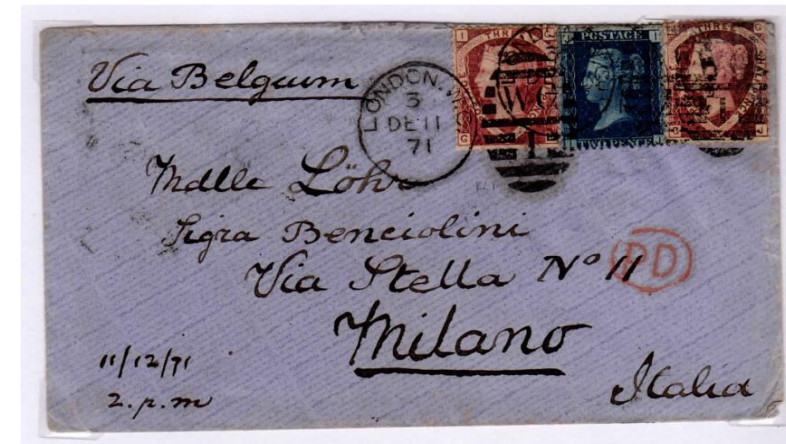 Via Belgium
LONDON.W.C
3
DE 11
71
THR
POSTAGE
THREE
WC
1
Mdlle Löhr
Sigra Benciolini
Via Stella Nº 11
PD
Milano
Italia
11/12/71
2.p.m